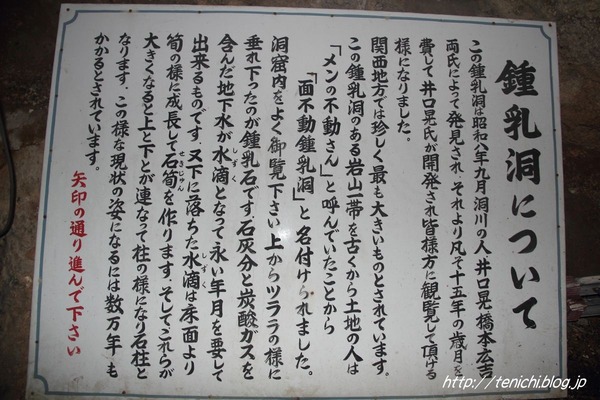 鍾乳洞について
この鍾乳洞は昭和八年九月洞川の人井口晃、橋本広吉
両氏によって発見され、それより凡そ十五年の歳月を
費して井口晃氏が開発され皆様方に観覧して頂ける
様になりました。
関西地方では珍しく最も大きいものとされています。
この鍾乳洞のある岩山一帯を古くから土地の人は
「メンの不動さん」と呼んでいたことから
「面不動鍾乳洞」と名付けられました。
洞窟内をよく御覧下さい上からツララの様に
垂れ下ったのが鍾乳石です.石灰分と炭酸ガスを
含んだ地下水が水滴しずくとなって永い年月を要して
出来るものです.又下に落ちた水滴しずくは床面より
筍の様に成長して石筍せきじゅんを作ります.そしてこれらが
大きくなると上と下とが連なって柱の様になり石柱と
なります.この様な現状の姿になるには数万年も
かかるとされています。
矢印の通り進んで下さい
http://tenichi.blog.jp